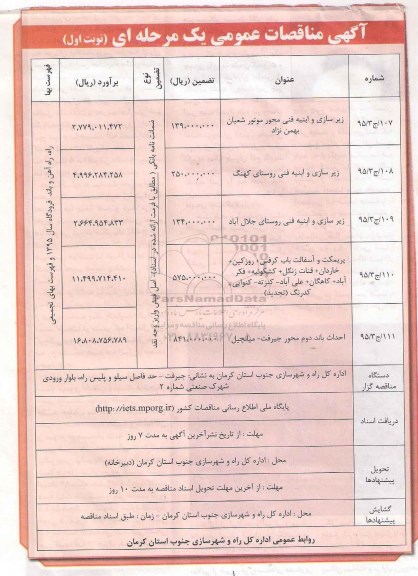 آگهی مناقصات عمومی یک مرحله ای (نوبت اول)
شماره
عنوان
تضمین (ریال)
نوع تضمین
برآورد (ریال)
فهرست بها
۹۵/۳/ج/۱۰۷
زیر سازی و ابنیه فنی محور موتور شعبان
بهمن نژاد
۱۳۹،۰۰۰،۰۰۰
۲،۷۷۹،۰۱۱،۴۷۲
۹۵/۳/ج/۱۰۸
زیر سازی و ابنیه فنی روستای کهنگ
۲۵۰،۰۰۰،۰۰۰
۴،۹۹۶،۲۸۴،۲۵۸
۹۵/۳/ج/۱۰۹
زیر سازی و ابنیه فنی روستای جلال آباد
۱۳۴،۰۰۰،۰۰۰
۲،۶۶۴،۹۵۴،۸۳۳
۹۵/۳/ج/۱۱۰
پریمکت و آسفالت باب کرفس+ روزکین+
خاردان+ قنات زنگل+ کشکوئیه+ فکر
آباد+ کاهگان+ علی آباد- کنزته- کنوایی+
کدرنگ (تجدید)
۵۷۵،۰۰۰،۰۰۰
۱۱،۴۹۹،۷۱۴،۴۱۰
۹۵/۳/ج/۱۱۱
احداث باند دوم محور جیرفت- میانچیل
۸۴۱،۰۰۰،۰۰۰
۱۶،۸۰۸،۷۵۶،۷۸۹
ضمانت نامه بانکی ( مطابق با فرمت ارائه شده در اسناد)- اصل فیش واریز وجه نقد
راه، راه آهن و باند فرودگاه سال ۱۳۹۵ و فهرست بهای تجمیعی
ParsNamadData
دستگاه
مناقصه گزار
اداره کل راه و شهرسازی جنوب استان کرمان به نشانی: جیرفت – حد فاصل سیلو و پلیس راه، بلوار ورودی
شهرک صنعتی شماره ۲
دریافت اسناد
پایگاه ملی اطلاع رسانی مناقصات کشور (http://iets.mporg.ir)
مهلت : از تاریخ نشرآخرین آگهی به مدت ۷ روز
تحویل
پیشنهادها
محل : اداره کل راه و شهرسازی جنوب استان کرمان (دبیرخانه)
مهلت : از آخرین مهلت تحویل اسناد مناقصه به مدت ۱۰ روز
گشایش
پیشنهادها
محل : اداره کل راه و شهرسازی جنوب استان کرمان – زمان : طبق اسناد مناقصه
روابط عمومی اداره کل راه و شهرسازی جنوب استان کرمان